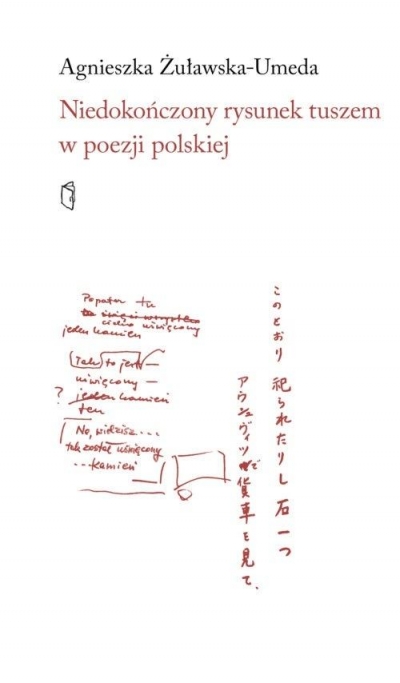 Agnieszka Żuławska-Umeda
Niedokończony rysunek tuszem
w poezji polskiej
Popatrz tu
cicho uświęcony
jeden kamień
(tak) to jest
uświęcony —
? jeden kamień
ten
No, widzisz....
tak został uświęcony
...kamień
このとおり 祀られたりし 石一つ
アウシュヴィッツで貨車を見て、